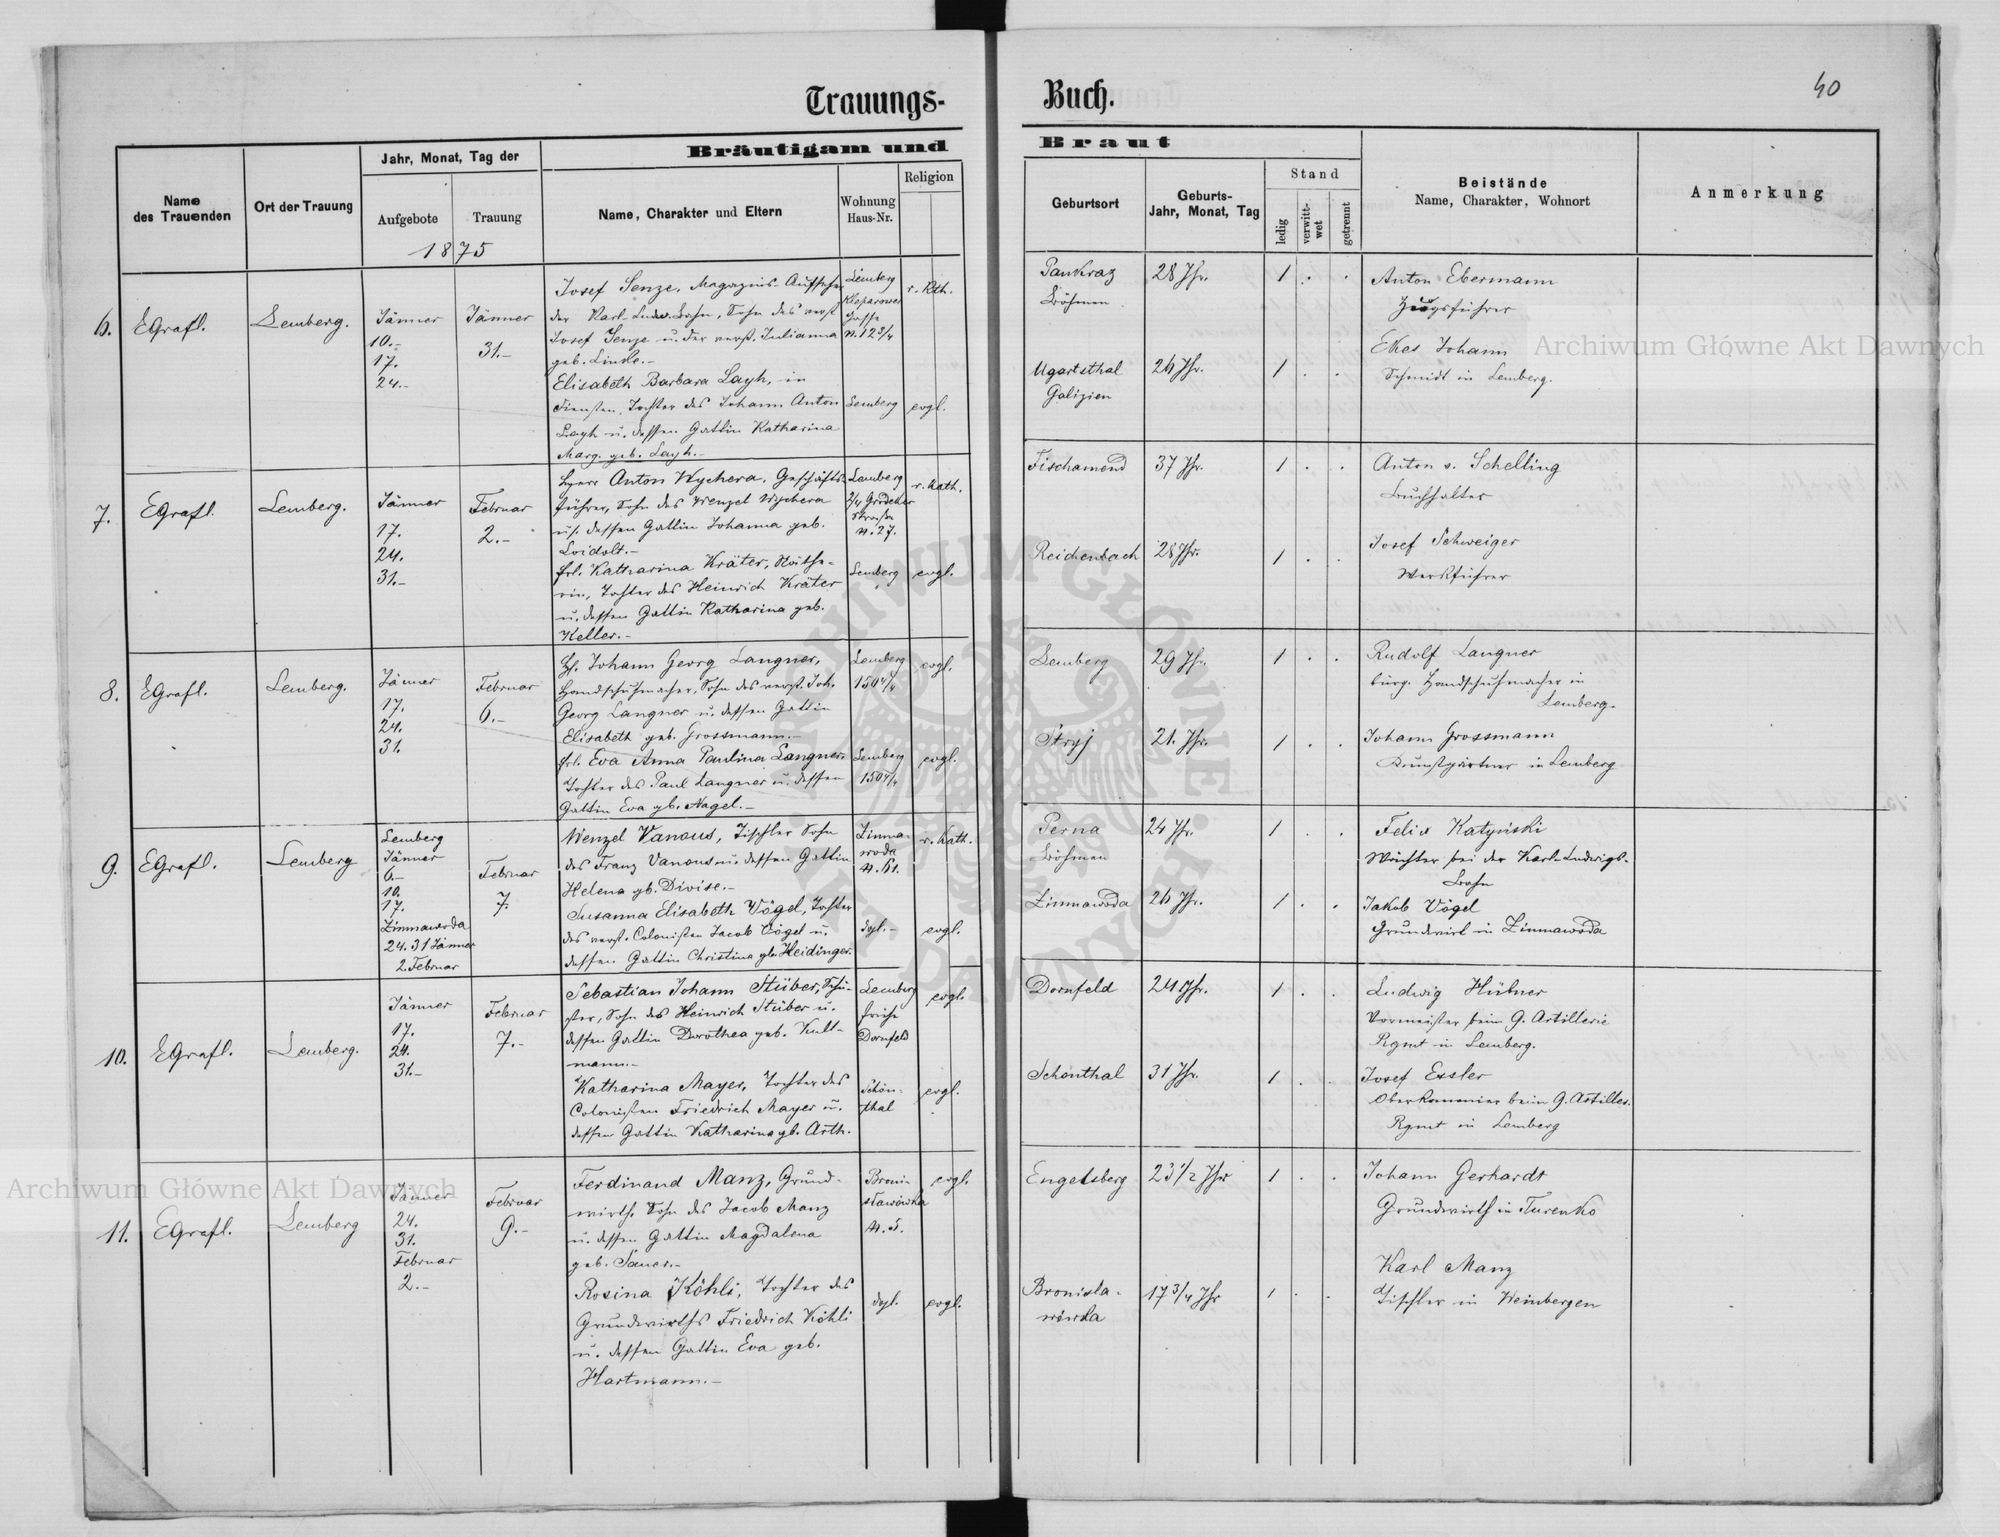 Trauungs- Buch.
40
Bräutigam und Braut
Name des Trauenden
Ort der Trauung
Jahr, Monat, Tag der
Aufgebote
Trauung
Name, Charakter und Eltern
Wohnung Haus-Nr.
Religion
Geburtsort
Geburts- Jahr, Monat, Tag
Stand
ledig
verwitt-wet
getrennt
Beistände
Name, Charakter, Wohnort
Anmerkung
1875
6.
EGrafl.
Lemberg.
Jänner
10.-
17.
24.-
Jänner
31.-
Josef Senze, Magazins-Aufseher
der Karl-Ludw.-Bahn, Sohn des verst
Josef Senze u. der verst. Julianna
geb. Linde.-
Lemberg
Gasse
N. 12 3/4
r. Kth.
Elisabeth Barbara Layh, in
Diensten, Tochter des Johann Anton
Layh u. dessen Gattin Katharina
Marg. geb. Layh.-
Lemberg
evgl.
Pankraz
Böhmen
28 Jhr.
1 . .
Anton Ebermann
Zugsführer
Ugartsthal
Galizien
26 Jhr.
1 . .
Ekes Johann
Schmidt in Lemberg.
7.
EGrafl.
Lemberg.
Jänner
17.
24.
31.-
Februar
2.-
Herr Anton Wychera, Geschäfts-
führer, Sohn des Wenzel Wychera
u. dessen Gattin Johanna geb.
Loidolt.-
Lemberg
2/4 Grodeker
Strasse
N. 27.
r. Kath.
Frl. Katharina Kräter, Näthe-
rin, Tochter des Heinrich Kräter
u. dessen Gattin Katharina geb.
Keller.-
Lemberg
evgl.
Fischamend
37 Jhr.
1 . .
Anton v. Schelling
Buchhalter
Reichenbach
28 Jhr.
1 . .
Josef Schweiger
Werkführer
8.
EGrafl.
Lemberg.
Jänner
17.
24.
31.
Februar
6.-
H. Johann Georg Langner,
Handschuhmacher, Sohn des verst. Joh.
Georg Langner u. dessen Gattin
Elisabeth geb. Grossmann.-
Lemberg
150 4/4
evgl.
Frl. Eva Anna Paulina Langner,
Tochter des Paul Langner u. dessen
Gattin Eva gb. Nagel.-
Lemberg
150 4/4
evgl.
Lemberg
29 Jhr.
1 . .
Rudolf Langner
bürg. Handschuhmacher in
Lemberg.
Stryj
21. Jhr.
1 . .
Johann Grossmann
Kunstgärtner in Lemberg
9.
EGrafl.
Lemberg
Lemberg
Jänner
6.-
10.
17.
Zimnawoda
24. 31 Jänner
2. Februar
Februar
7.
Wenzel Vanous, Tischler Sohn
des Franz Vanous u. dessen Gattin
Helena gb. Divise.-
Zimna-
woda
N. 61.
r. Kath.
Susanna Elisabeth Vögel, Tochter
des verst. Colonisten Jacob Vögel u.
dessen Gattin Christina gb. Heidinger.
dgl.-
evgl.
Perna
Böhmen
24 Jhr.
1 . .
Felix Katyński
Wächter bei der Karl-Ludwigs-
Bahn
Zimnawoda
26 Jhr.
1 . .
Jakob Vögel
Grundwirt in Zimnawoda
10.
EGrafl.
Lemberg.
Jänner
17.
24.
31.-
Februar
7.-
Sebastian Johann Stüber, Schu-
ster, Sohn des Heinrich Stüber u.
dessen Gattin Dorothea geb. Kult-
mann.-
Lemberg
früher
Dornfeld
evgl.
Katharina Mayer, Tochter des
Colonisten Friedrich Mayer u.
dessen Gattin Katharina gb. Arth.
Schön-
thal
evgl.
Dornfeld
24 Jhr.
1 . .
Ludwig Hübner
Vormeister beim 9. Artillerie
Rgmt in Lemberg.
Schönthal
31 Jhr.
1 . .
Josef Essler
Oberkanonier beim 9. Artiller.
Rgmt in Lemberg
11.
EGrafl.
Lemberg
Jänner
24.
31.
Februar
2.-
Februar
9.-
Ferdinand Manz, Grund-
wirth, Sohn des Jacob Manz
u. dessen Gattin Magdalena
geb. Sauer.-
Broni-
sławówka
N. 5.
evgl.
Rosina Köhli, Tochter des
Grundwirths Friedrich Köhli
u. dessen Gattin Eva geb.
Hartmann.-
dgl.
evgl.
Engelsberg
23 1/2 Jhr
1 . .
Johann Gerhardt
Grundwirth in Turenko
Bronisła-
wówka
17 3/4 Jhr
1 . .
Karl Manz
Tischler in Weinbergen
Archiwum Główne Akt Dawnych
Archiwum Główne Akt Dawnych
ARCHIWUM GŁÓWNE AKT DAWNYCH